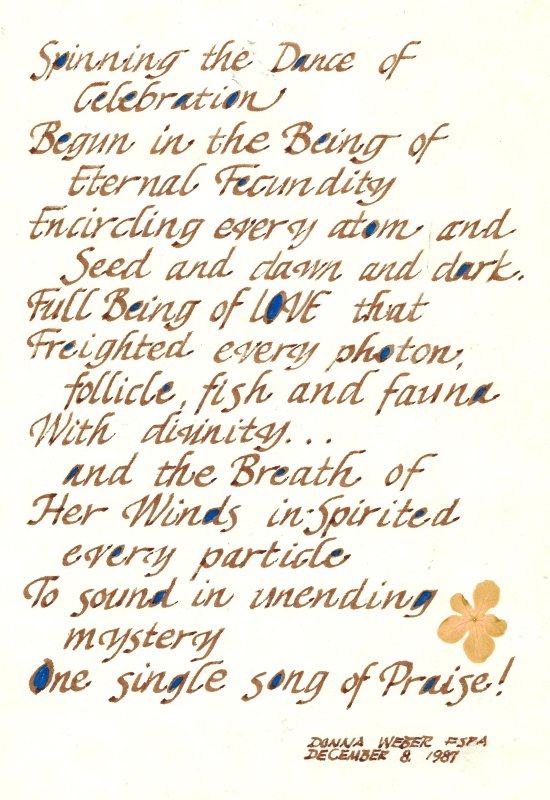 Spinning the Dance of
Celebration
Begun in the Being of
Eternal Fecundity
Encircling every atom and
Seed and dawn and dark.
Full Being of LOVE that
Freighted every photon,
follicle, fish and fauna
With divinity...
and the Breath of
Her Winds in-Spirited
every particle
To sound in unending
mystery
One single song of Praise!
DONNA WEBER FSPA
DECEMBER 8, 1987